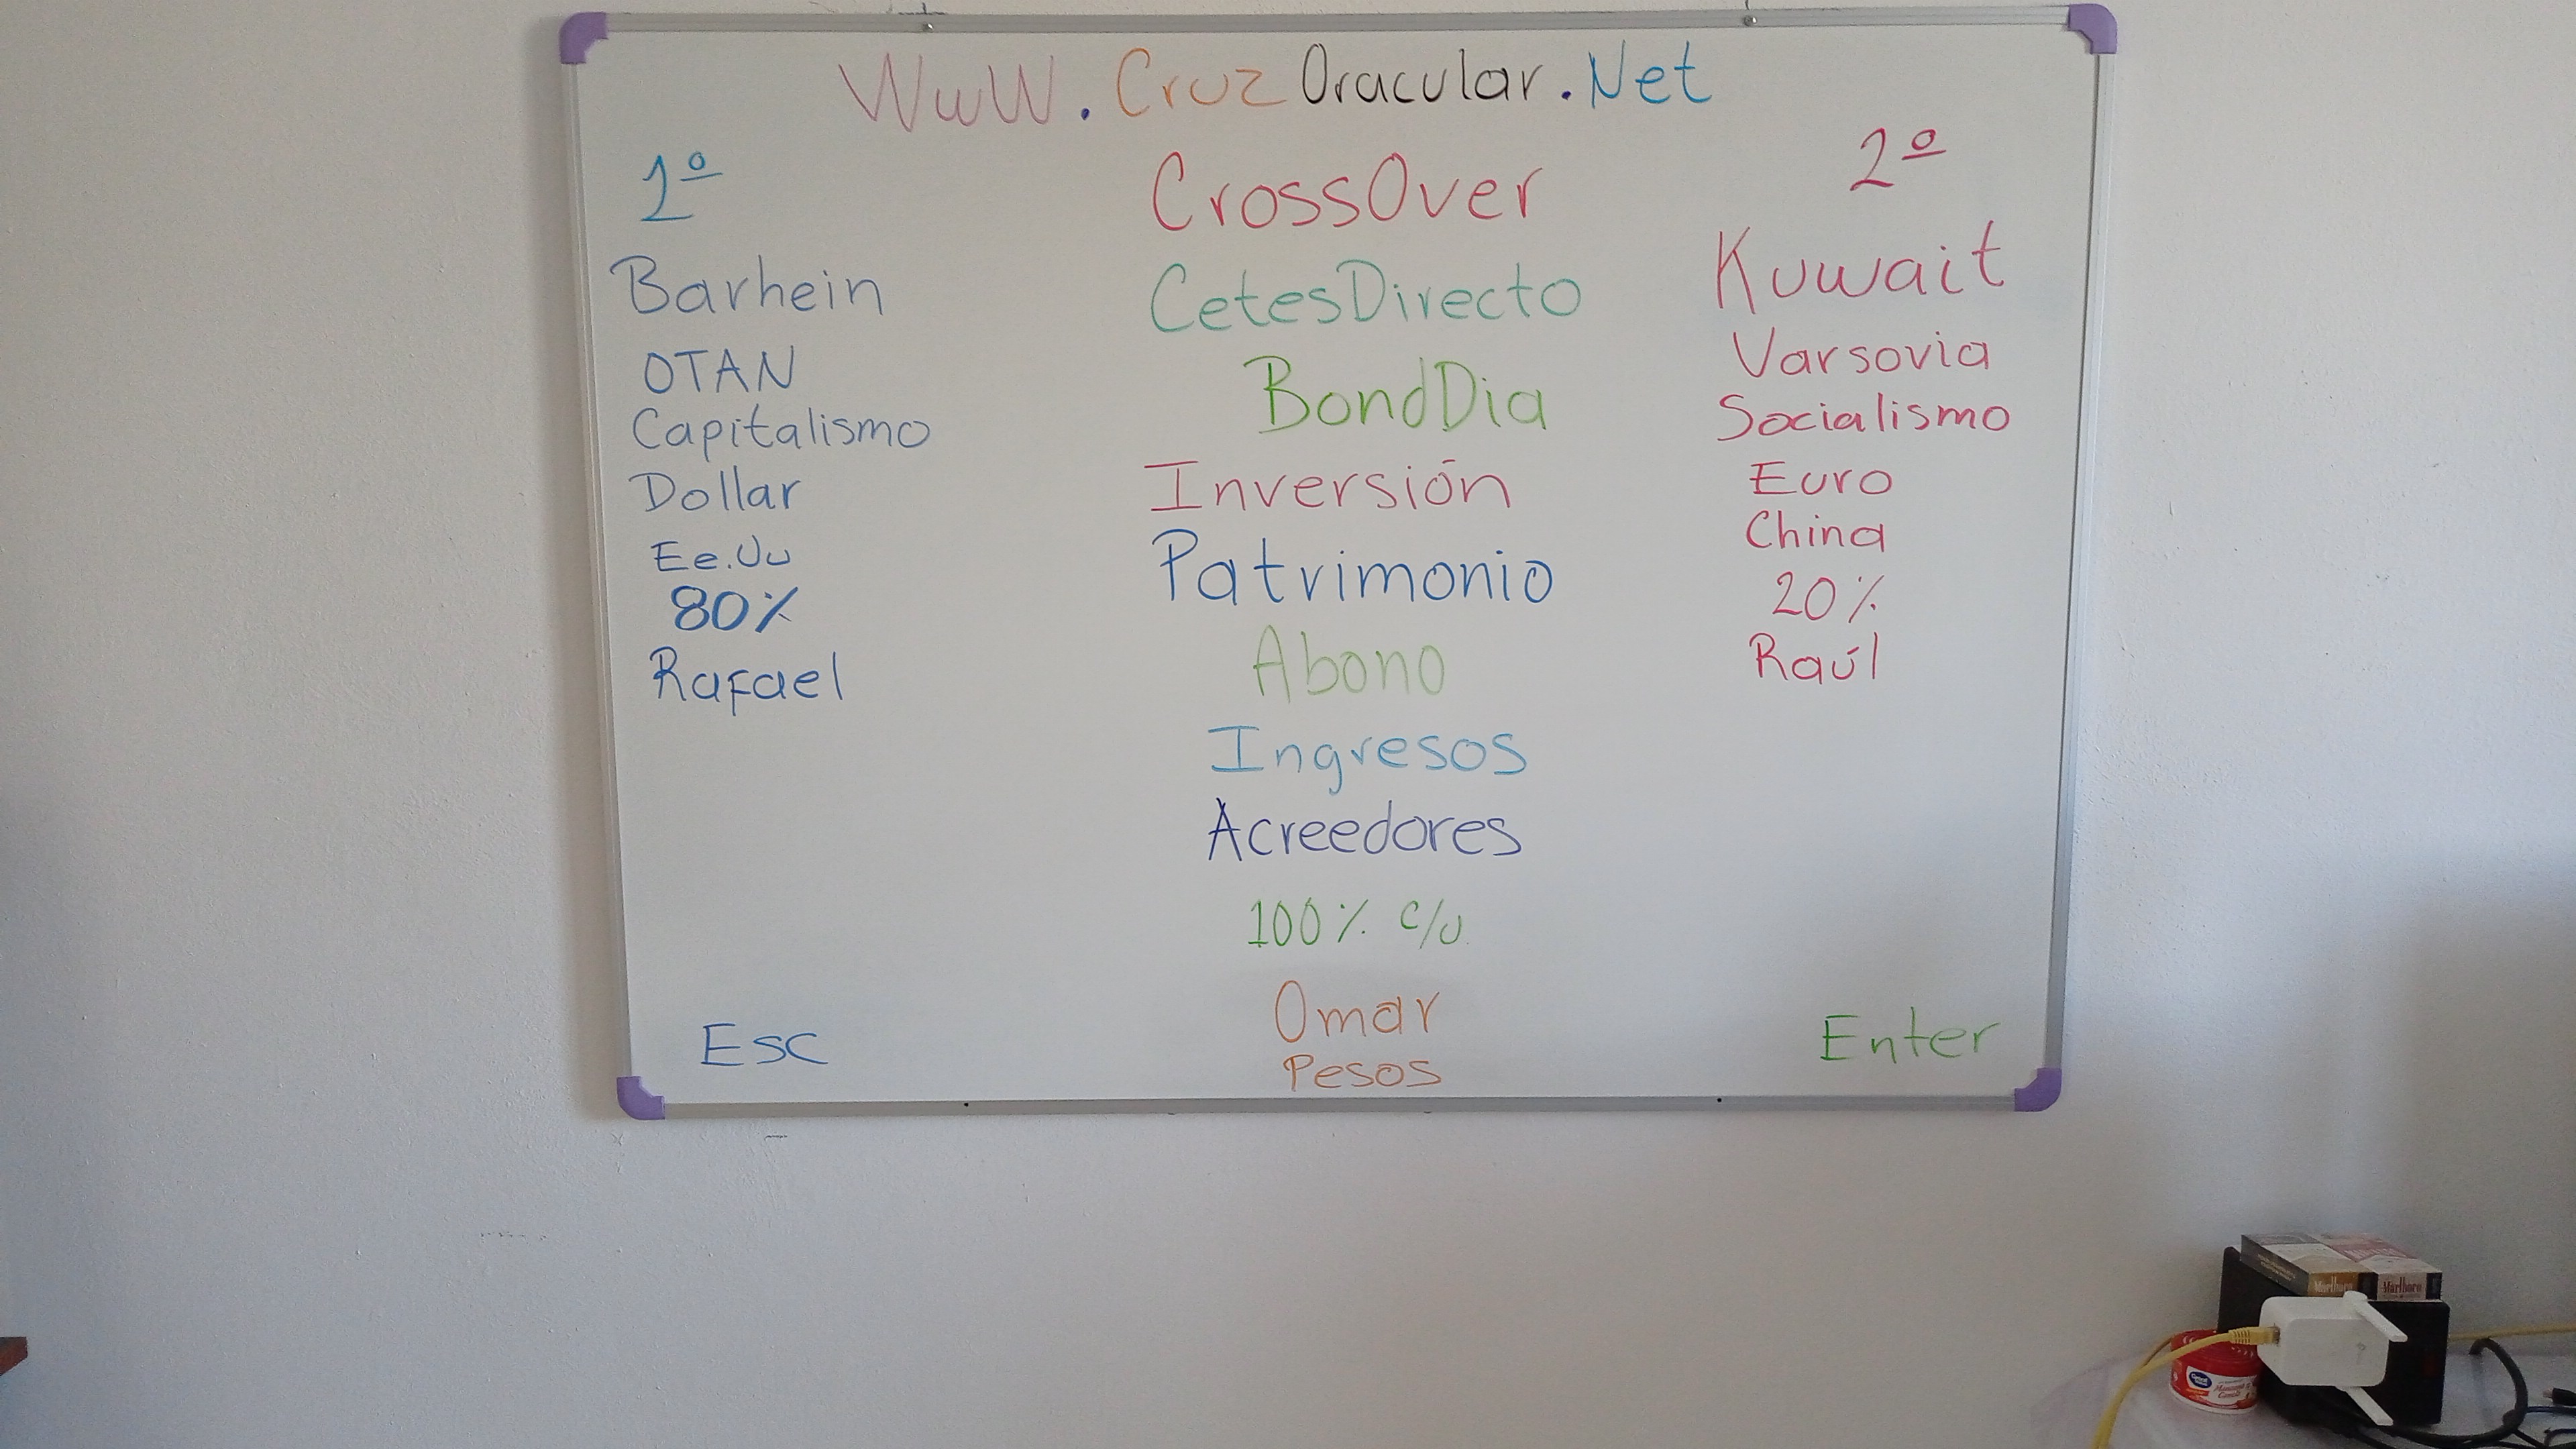 WwW.CruzOracular.Net
1º
Barhein
OTAN
Capitalismo
Dollar
Ee.Uu
80%
Rafael
Esc
CrossOver
CetesDirecto
BondDia
Inversión
Patrimonio
Abono
Ingresos
Acreedores
100% c/u
Omar
Pesos
2º
Kuwait
Varsovia
Socialismo
Euro
China
20%
Raúl
Enter
Marlboro
Marlboro